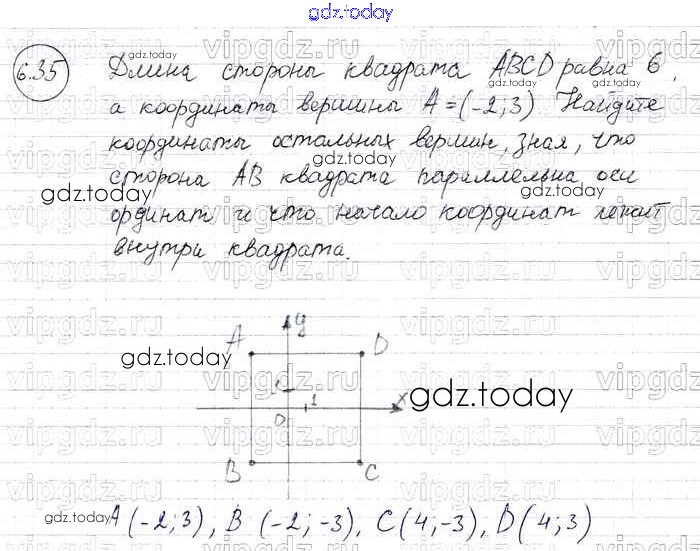 gdz.today
6.35
Длина стороны квадрата ABCD равна 6,
а координаты вершины A=(-2;3) Найдите
координаты остальных вершин, зная, что
сторона AB квадрата параллельна оси
ординат и что начало координат лежит
внутри квадрата.
y
A D
gdz.today
1
x
gdz.today
0 1
B C
gdz.today
A (-2;3), B (-2;-3), C(4;-3), D(4;3)
vipgdz.ru